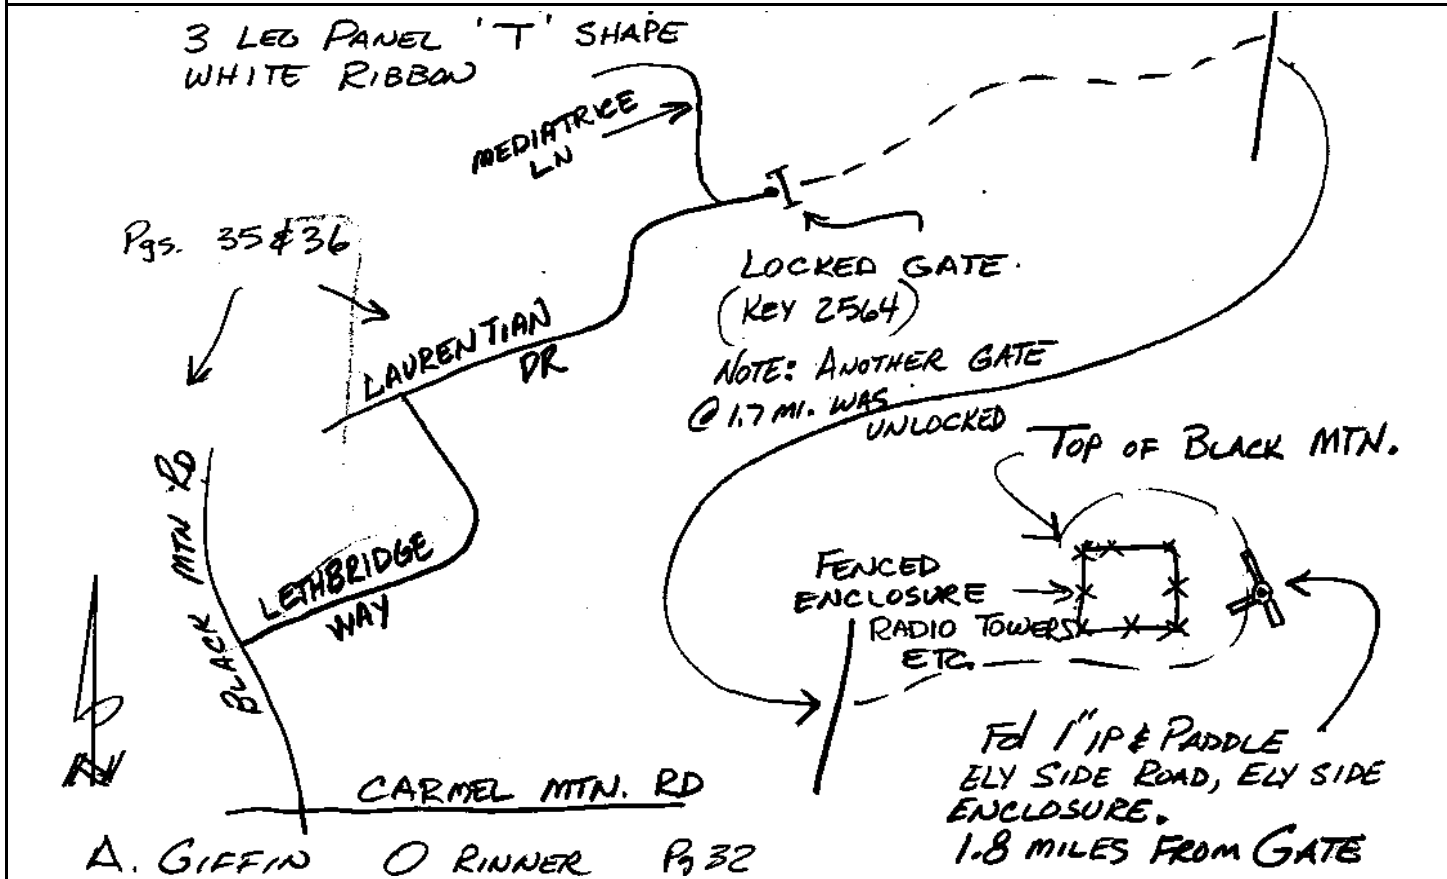 3 LEG PANEL 'T' SHAPE
WHITE RIBBON
MEDIATRICE
LN
Pgs. 35 & 36
LOCKED GATE.
(KEY 2564)
LAURENTIAN
DR
NOTE: ANOTHER GATE
@ 1.7 MI. WAS
UNLOCKED
TOP OF BLACK MTN.
BLACK MTN RD
LETHBRIDGE
WAY
FENCED
ENCLOSURE
RADIO TOWERS
ETC.
N
Fd 1" IP & PADDLE
ELY SIDE ROAD, ELY SIDE
ENCLOSURE.
1.8 MILES FROM GATE
CARMEL MTN. RD
A. GIFFIN O RINNER Pg 32